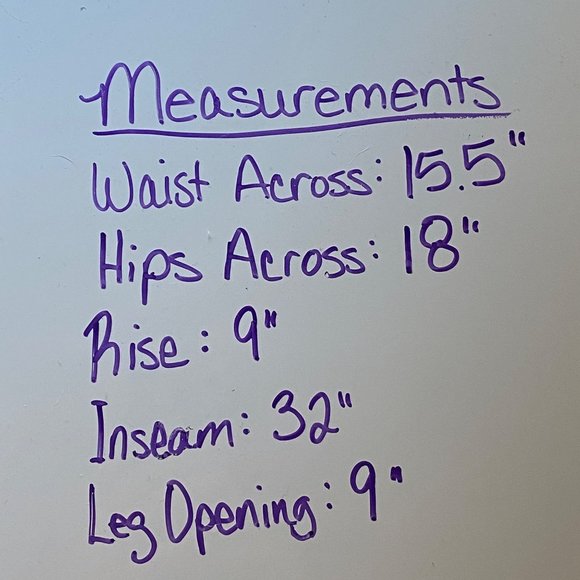 Measurements
Waist Across: 15.5"
Hips Across: 18"
Rise: 9"
Inseam: 32"
Leg Opening: 9"